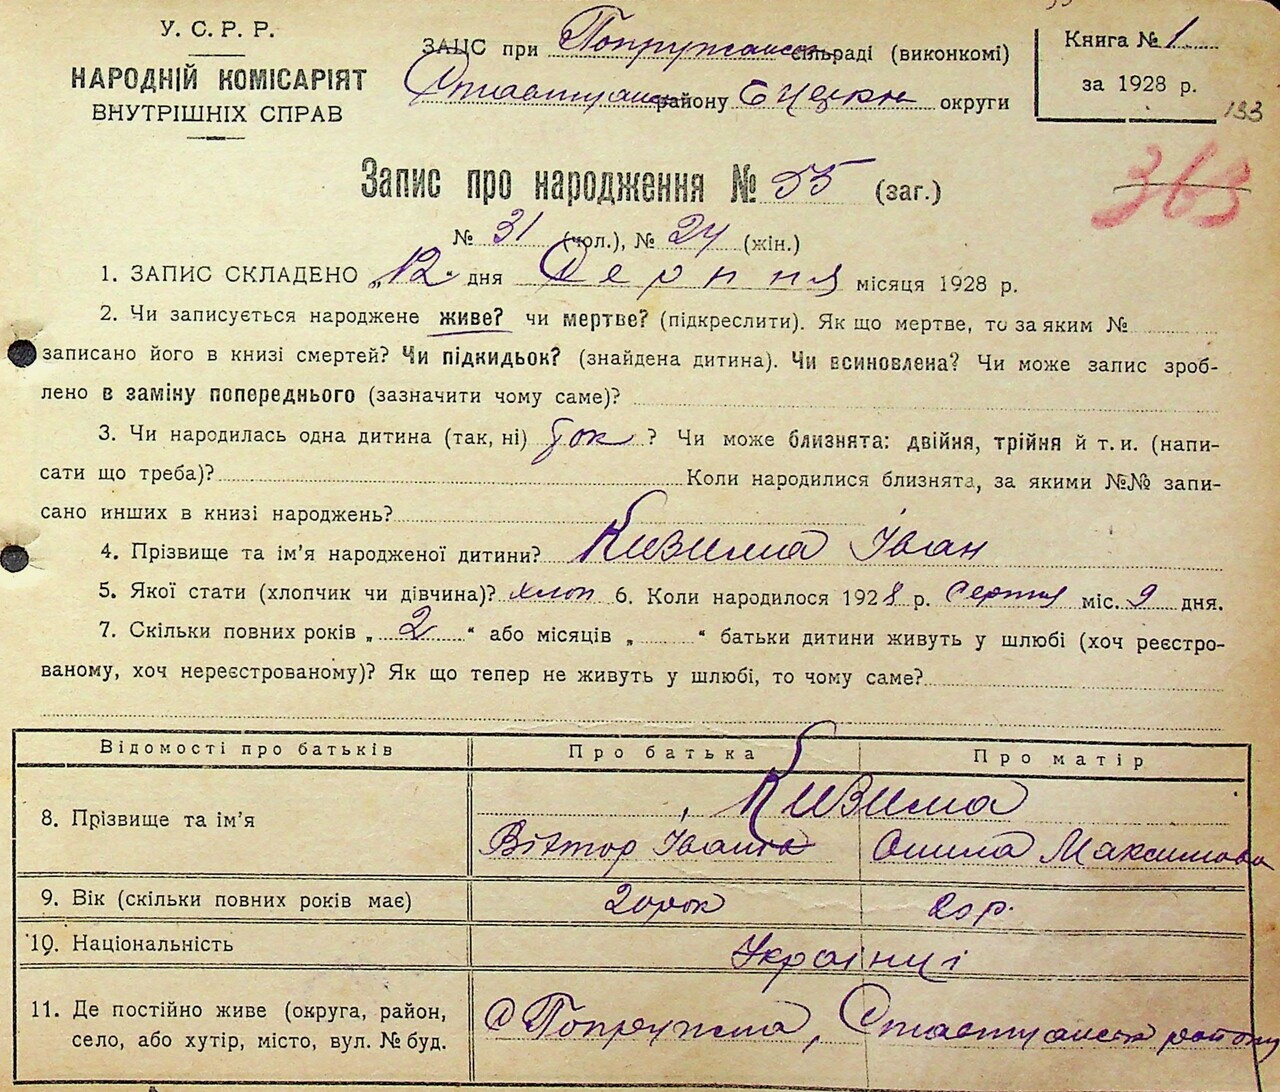 У. С. Р. Р.
НАРОДНІЙ КОМІСАРІЯТ
ВНУТРІШНІХ СПРАВ
ЗАЦС при сільраді (виконкомі)
району округи
Книга № 1
за 1928 р.
133
363
Запис про народження № 55 (заг.)
№ 31 (чол.), № 24 (жін.)
1. ЗАПИС СКЛАДЕНО „12" дня Серпня місяця 1928 р.
2. Чи записується народжене живе? чи мертве? (підкреслити). Як що мертве, то за яким №
записано його в книзі смертей? Чи підкидьок? (знайдена дитина). Чи всиновлена? Чи може запис зроб-
лено в заміну попереднього (зазначити чому саме)?
3. Чи народилась одна дитина (так, ні) ? Чи може близнята: двійня, трійня й т. и. (напи-
сати що треба)? Коли народилися близнята, за якими №№ запи-
сано инших в книзі народжень?
4. Прізвище та ім'я народженої дитини? Кизима Іван
5. Якої стати (хлопчик чи дівчина)? хлоп 6. Коли народилося 1928 р. серпня міс. 9 дня.
7. Скільки повних років „ 2 " або місяців „ " батьки дитини живуть у шлюбі (хоч реєстро-
ваному, хоч нереєстрованому)? Як що тепер не живуть у шлюбі, то чому саме?
Відомості про батьків Про батька Про матір
8. Прізвище та ім'я Кизима
Віктор Іванов Максимова
9. Вік (скільки повних років має) 20 р.
10. Національність Українці
11. Де постійно живе (округа, район,
село, або хутір, місто, вул. № буд. с Попружна, району